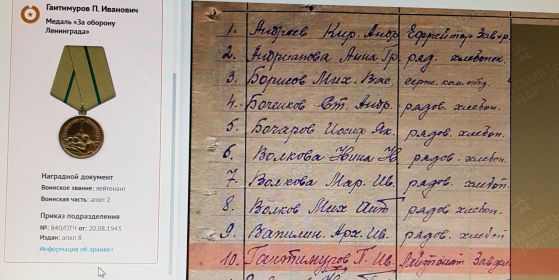 Гантимуров П. Иванович
Медаль «За оборону
Ленинграда»
Наградной документ
Воинское звание: лейтенант
Воинская часть: апхл 2
Приказ подразделения
№: 840/ОТЧ от: 20.08.1943
Издан: апхл 8
Информация об архиве+
1. Андреев Кир. Андр. Ефрейтор Зав.
2. Андрианова Анна Гр. ряд. хлебопек.
3. Борисов Мих. Вас. серж. ком. отд.
4. Ст. Андр. рядов. хлебоп.
5. Бочаров Иосиф Як. рядов. хлебоп.
6. Волкова Нина Н рядов. хлебоп.
7. Волкова Мар. Ив. рядов. хлебоп.
8. Волков Мих Ант рядов. хлебоп.
9. Вапилин. Арх. Ив. рядов. хлебоп.
10. Гантимуров П. Ив. Лейтенант